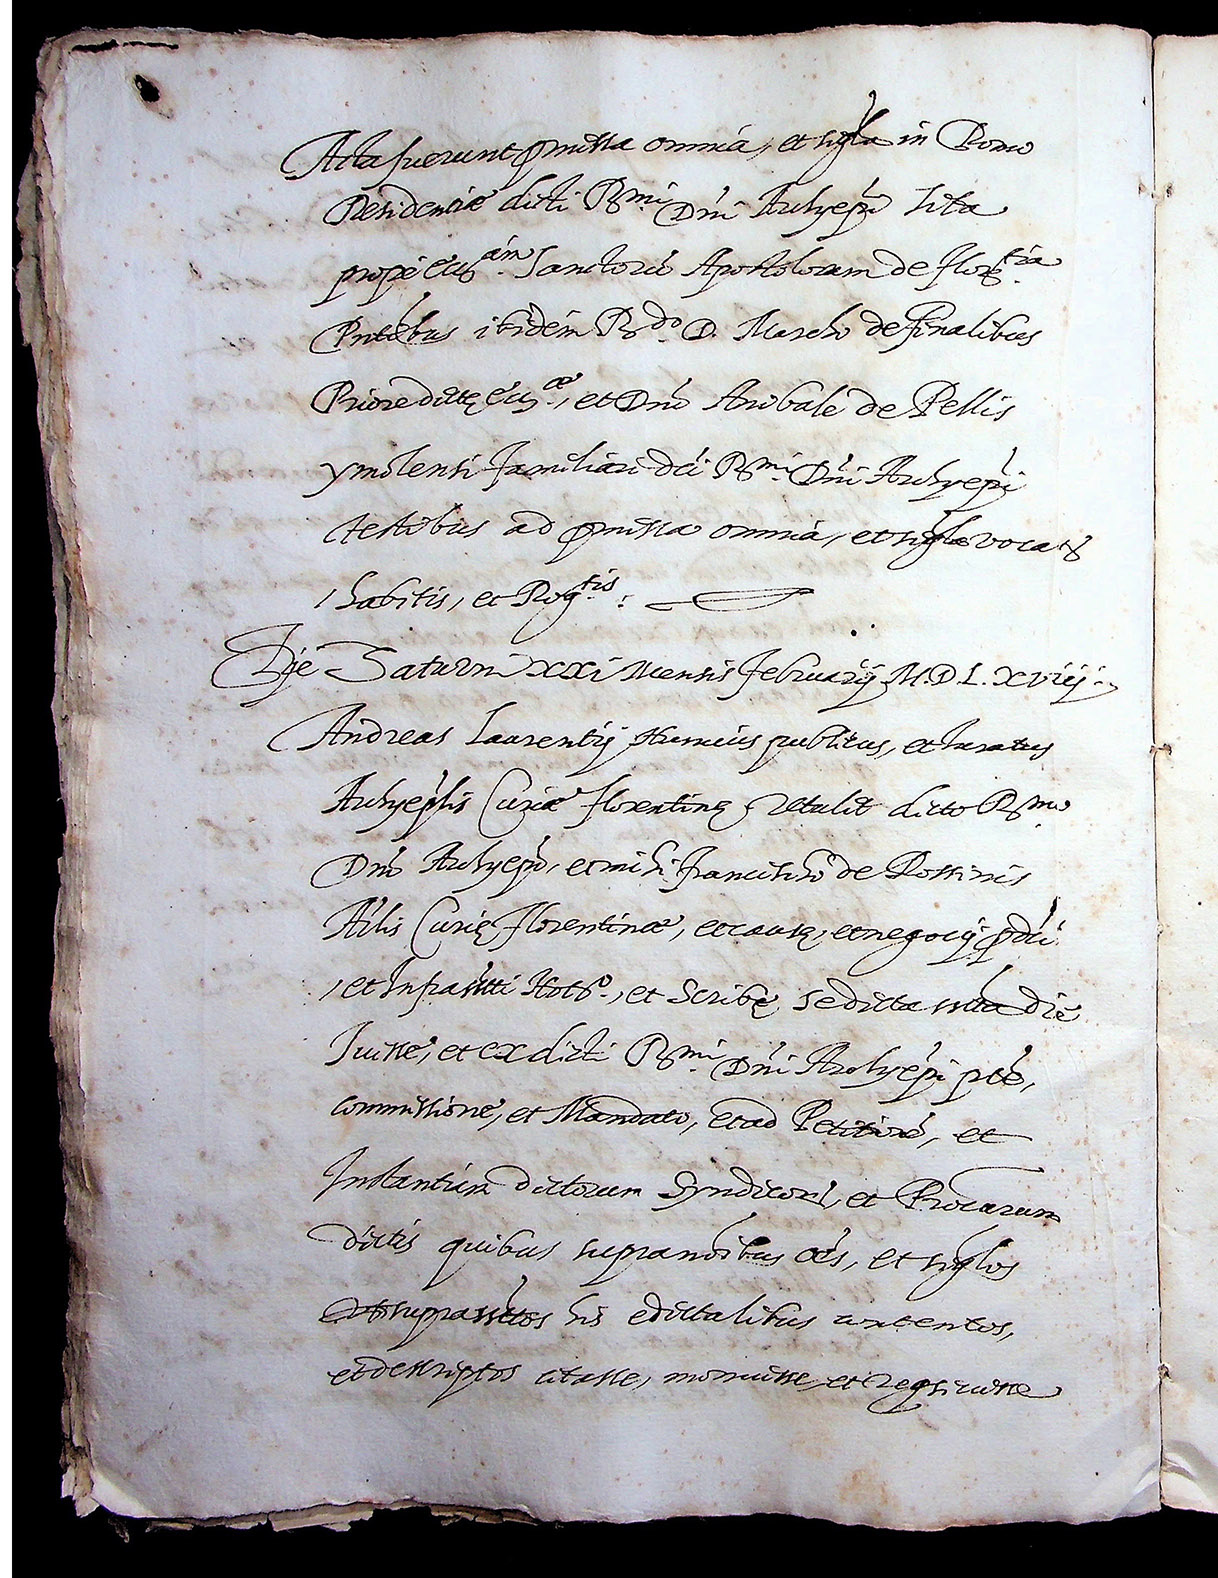 Acta fuerunt pmissa omnia, et sigla in Domo
Residentiæ dicti Rmi Dni Archyepi Sita
propè Ecciam Sanctorū Apostolorum de Flortia
Pntibus ibidem Rdo D. Marcho de Finalibus
Priore dictę Eccæ, et Dno Anibale de Pellis
ymolensi familiari dci Rmi Dni Archyepi
testibus ad pmissa omnia, et sigla vocatis
, habitis, et Rogtis:
Die Saturni xxi Mensis februarij M.D.L.xviij.
Andreas Laurentij Nuncius publicus, et Iuratus
Archyeplis Curiæ florentinę retulit dicto Rmo
Dno Archyepo, et mihi francischo de
Curię florentinæ, et causę, et negocij pdci
, et Infrascritti Noto, et Scribę se dicta die
Iuisse, et ex dicti Rmi Dni Archyepi pte,
commissione, et Mandato, et ad Petitionē, et
Instantiam dictorum Syndicorū, et Procurum
dictis quibus supra nōibus oēs, et siglos
suprascrittos his edictalibus contentos,
et descriptos citasse, monuisse, et reqsiuisse